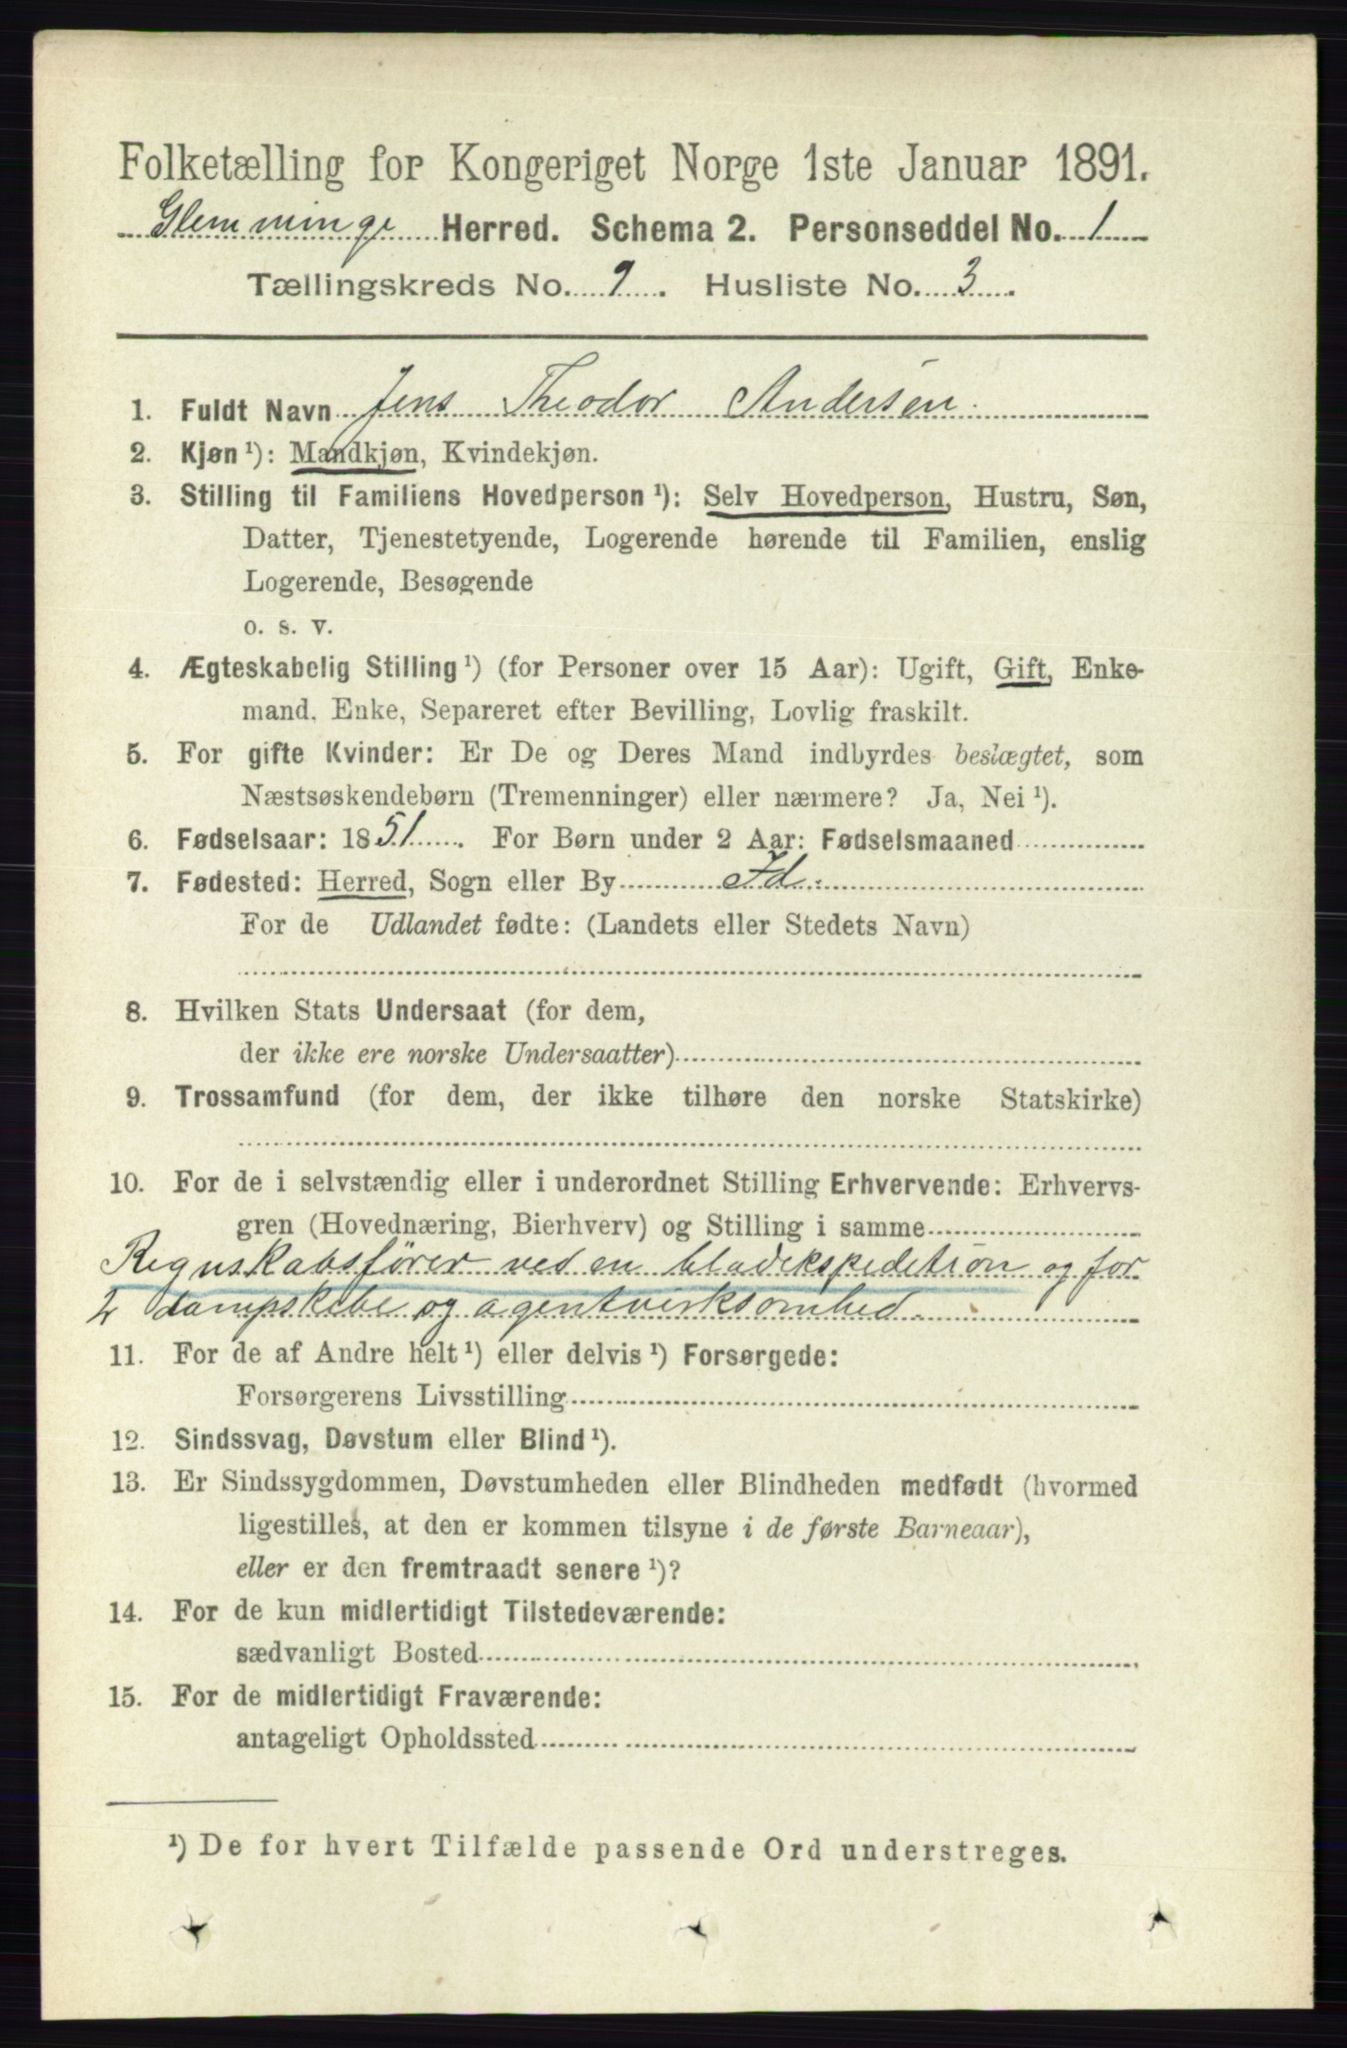 Folketælling for Kongeriget Norge 1ste Januar 1891.
Glemminge Herred. Schema 2. Personseddel No. 1
Tællingskreds No. 9. Husliste No. 3.
1. Fuldt Navn Jens Theodor Andersen.
2. Kjøn ¹): Mandkjøn, Kvindekjøn.
3. Stilling til Familiens Hovedperson ¹): Selv Hovedperson, Hustru, Søn,
Datter, Tjenestetyende, Logerende hørende til Familien, enslig
Logerende, Besøgende
o. s. v.
4. Ægteskabelig Stilling ¹) (for Personer over 15 Aar): Ugift, Gift, Enke-
mand, Enke, Separeret efter Bevilling, Lovlig fraskilt.
5. For gifte Kvinder: Er De og Deres Mand indbyrdes beslægtet, som
Næstsøskendebørn (Tremenninger) eller nærmere? Ja, Nei ¹).
6. Fødselsaar: 1851. For Børn under 2 Aar: Fødselsmaaned
7. Fødested: Herred, Sogn eller By Id.
For de Udlandet fødte: (Landets eller Stedets Navn)
8. Hvilken Stats Undersaat (for dem,
der ikke ere norske Undersaatter)
9. Trossamfund (for dem, der ikke tilhøre den norske Statskirke)
10. For de i selvstændig eller i underordnet Stilling Erhvervende: Erhvervs-
gren (Hovednæring, Bierhverv) og Stilling i samme
Regnskabsfører ved en bladekspedition og for
2 dampskibe og agentvirksomhed.
11. For de af Andre helt ¹) eller delvis ¹) Forsørgede:
Forsørgerens Livsstilling
12. Sindssvag, Døvstum eller Blind ¹).
13. Er Sindssygdommen, Døvstumheden eller Blindheden medfødt (hvormed
ligestilles, at den er kommen tilsyne i de første Barneaar),
eller er den fremtraadt senere ¹)?
14. For de kun midlertidigt Tilstedeværende:
sædvanligt Bosted
15. For de midlertidigt Fraværende:
antageligt Opholdssted
¹) De for hvert Tilfælde passende Ord understreges.